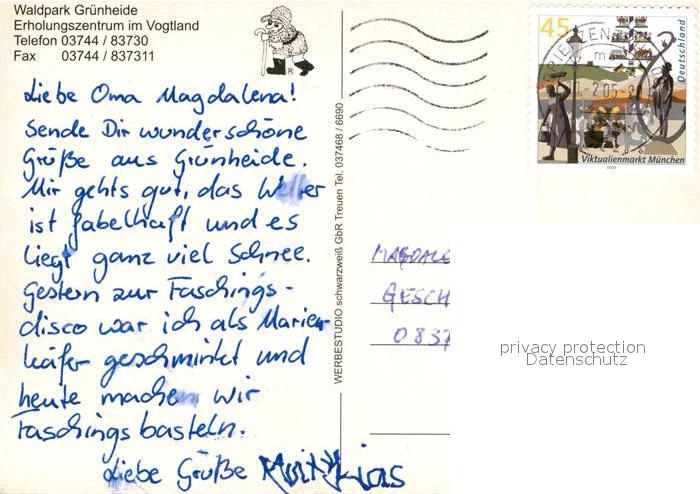 Waldpark Grünheide
Erholungszentrum im Vogtland
Telefon 03744 / 83730
Fax 03744 / 837311
Liebe Oma Magdalena!
Sende Dir wunderschöne
Grüße aus Grünheide.
Mir gehts gut, das Wetter
ist fabelhaft und es
liegt ganz viel Schnee.
Gestern zur Faschings-
disco war ich als Marien-
käfer geschminkt und
heute machen wir
Faschingsbasteln.
Liebe Grüße
WERBESTUDIO schwarzweiß GbR Treuen Tel. 037468 / 6690
45
Deutschland
Viktualienmarkt München
2003
MAGDALE
GESCH
0837
privacy protection
Datenschutz